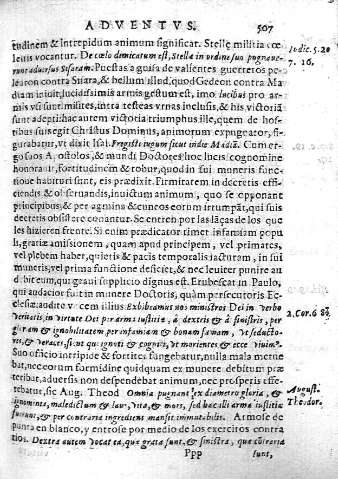 ADVENTVS. 507
tudinem & Intrepidum animum significat. Stellę militia cœ
lestis vocantur. De cœlo dimicatum est, Stellæ in ordine suo pugnaue-
runt aduersus Sisaram. Puestas a guisa de valientes guerreros pe-
learon contra Sisara, & bellum illud, quod Gedeon contra Ma
diam iniuit, lucidissimis armis gestum est, imo lucibus pro ar-
mis vsi sunt milites, intra testeas vrnas inclusis, & his victoriā
sunt adepti: hæc autem victoria triumphus ille, quem de hos-
tibus suis egit Christus Dominus, animorum expugnator, fi-
gurabatur, vt dixit Isai. Fregisti iugum sicut in die Madiā. Com er-
go suos A ostolos, & mundi Doctores hoc lucis cognomine
honorauit, fortitudinem & robur, quod in sui muneris func-
tione habituri sunt, eis prædixit. Firmitatem in decretis effi-
ciendis & obseruandis, inuictum animum, quo se opponant
principibus, & per agmina & cuneos eorum irrumpāt, qui suis
decretis obsistere conantur. Se entren por las lāças de los que
les hizieren frente. Si enim prædicator timet infamiam popu
li, gratiæ amissionem, quam apud principem, vel primates,
vel plebem haber, quietis & pacis temporalis iacturam, in sui
muneris, vel prima functione deficiet, & nec leuiter punire au
debiteum, qui graui supplicio dignus est. Erubescat in Paulo,
qui audacior fuit in munere Doctoris, quàm persecutoris Ec-
clesiæ: audite vocem illius Exhibeamus nos ministros Dei in verbo
veritatis, in virtute Dei per arma iustitiæ, à dextris & à sinistris, per
gloriam & ignobilitatem per infamiam & bonam famam, vt seducto-
res, & veraces, sicut qui ignoti & cogniti, vt morientes & ecce viuim9.
Suo officio intrepide & fortiter fungebatur, nulla mala metue
bat, nec eorum formidine quidquam ex munere debitum præ
teribat, aduersis non despendebat animum, nec prosperis effe
rebatur, sic Aug. Theod Omnia pugnant ex diametro gloria, &
ignominia, maledictum & laus, vita, & mors, sed bac illi arma iustitiæ
fuerunt, & per contraria ingrediens mansit immutabilis. Armose de
punta en blanco, y entrose por medio de los exercitos contra
rios. Dextra autem vocat ea, quæ grata sunt, & sinistra, quæ cōtraria
Ppp sunt,
Iudic. 5. 20
7. 16.
2. Cor. 6 89
August.
Theodor.